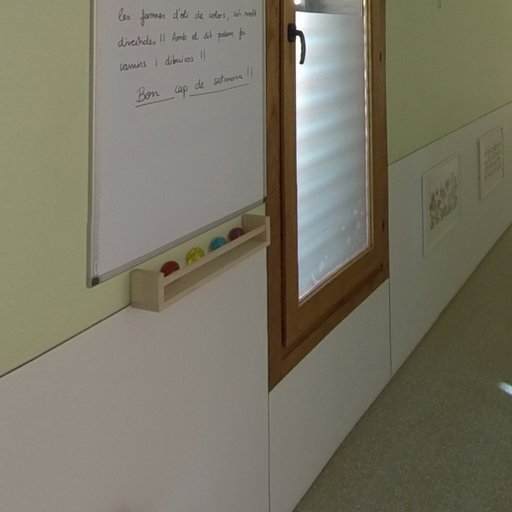 les formes d'oli de colors, són molt
divertides!! Amb el dit podem fer
camins i dibuixos!!
Bon cap de setmana!!